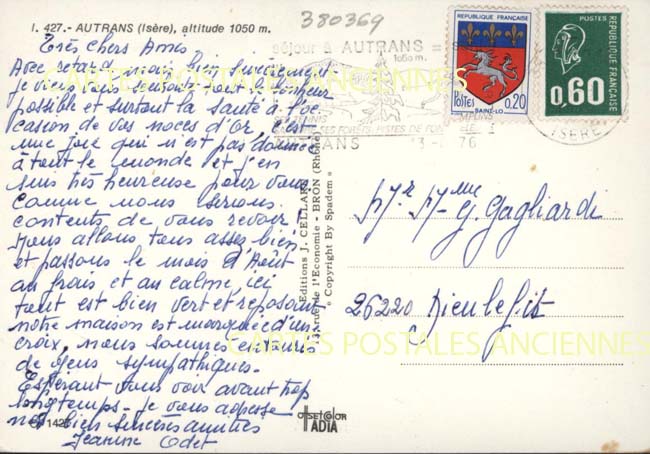 I. 427.- AUTRANS (Isère), altitude 1050 m.
380369
Très chers Amis
Avec retard mais bien vivement
je viens vous souhaiter tout le bonheur
possible et surtout la santé à l'oc
casion de vos noces d'or, c'est
une joie qui n'est pas donnée
à tout le monde et j'en
suis très heureuse pour vous
comme nous serions
contents de vous revoir!
Nous allons tous assez bien
et passons le mois d'Août
au frais et au calme, ici
tout est bien vert et reposant
notre maison est marquée d'un
croix, nous sommes entourés
de gens sympathiques.
Espérant vous voir avant trop
longtemps - je vous adresse
nos bien sincères amitiés
Jeanine Odet
1425
Editions J. CELLARD
rue de l'Economie - BRON (Rhône)
« Copyright By Spadem »
offsetcolor
IADIA
séjour à AUTRANS =
1050 m.
TENNIS
SES FORETS, PISTES DE FON
AUTRANS
3- 76
ISÈRE
REPUBLIQUE FRANÇAISE
POSTES
SAINT-LO
0,20
POSTES
REPUBLIQUE FRANÇAISE
0,60
Mr Mme G. Gagliardi
26220 Dieulefit
CARTES POSTALES ANCIENNES
CARTES POSTALES ANCIENNES